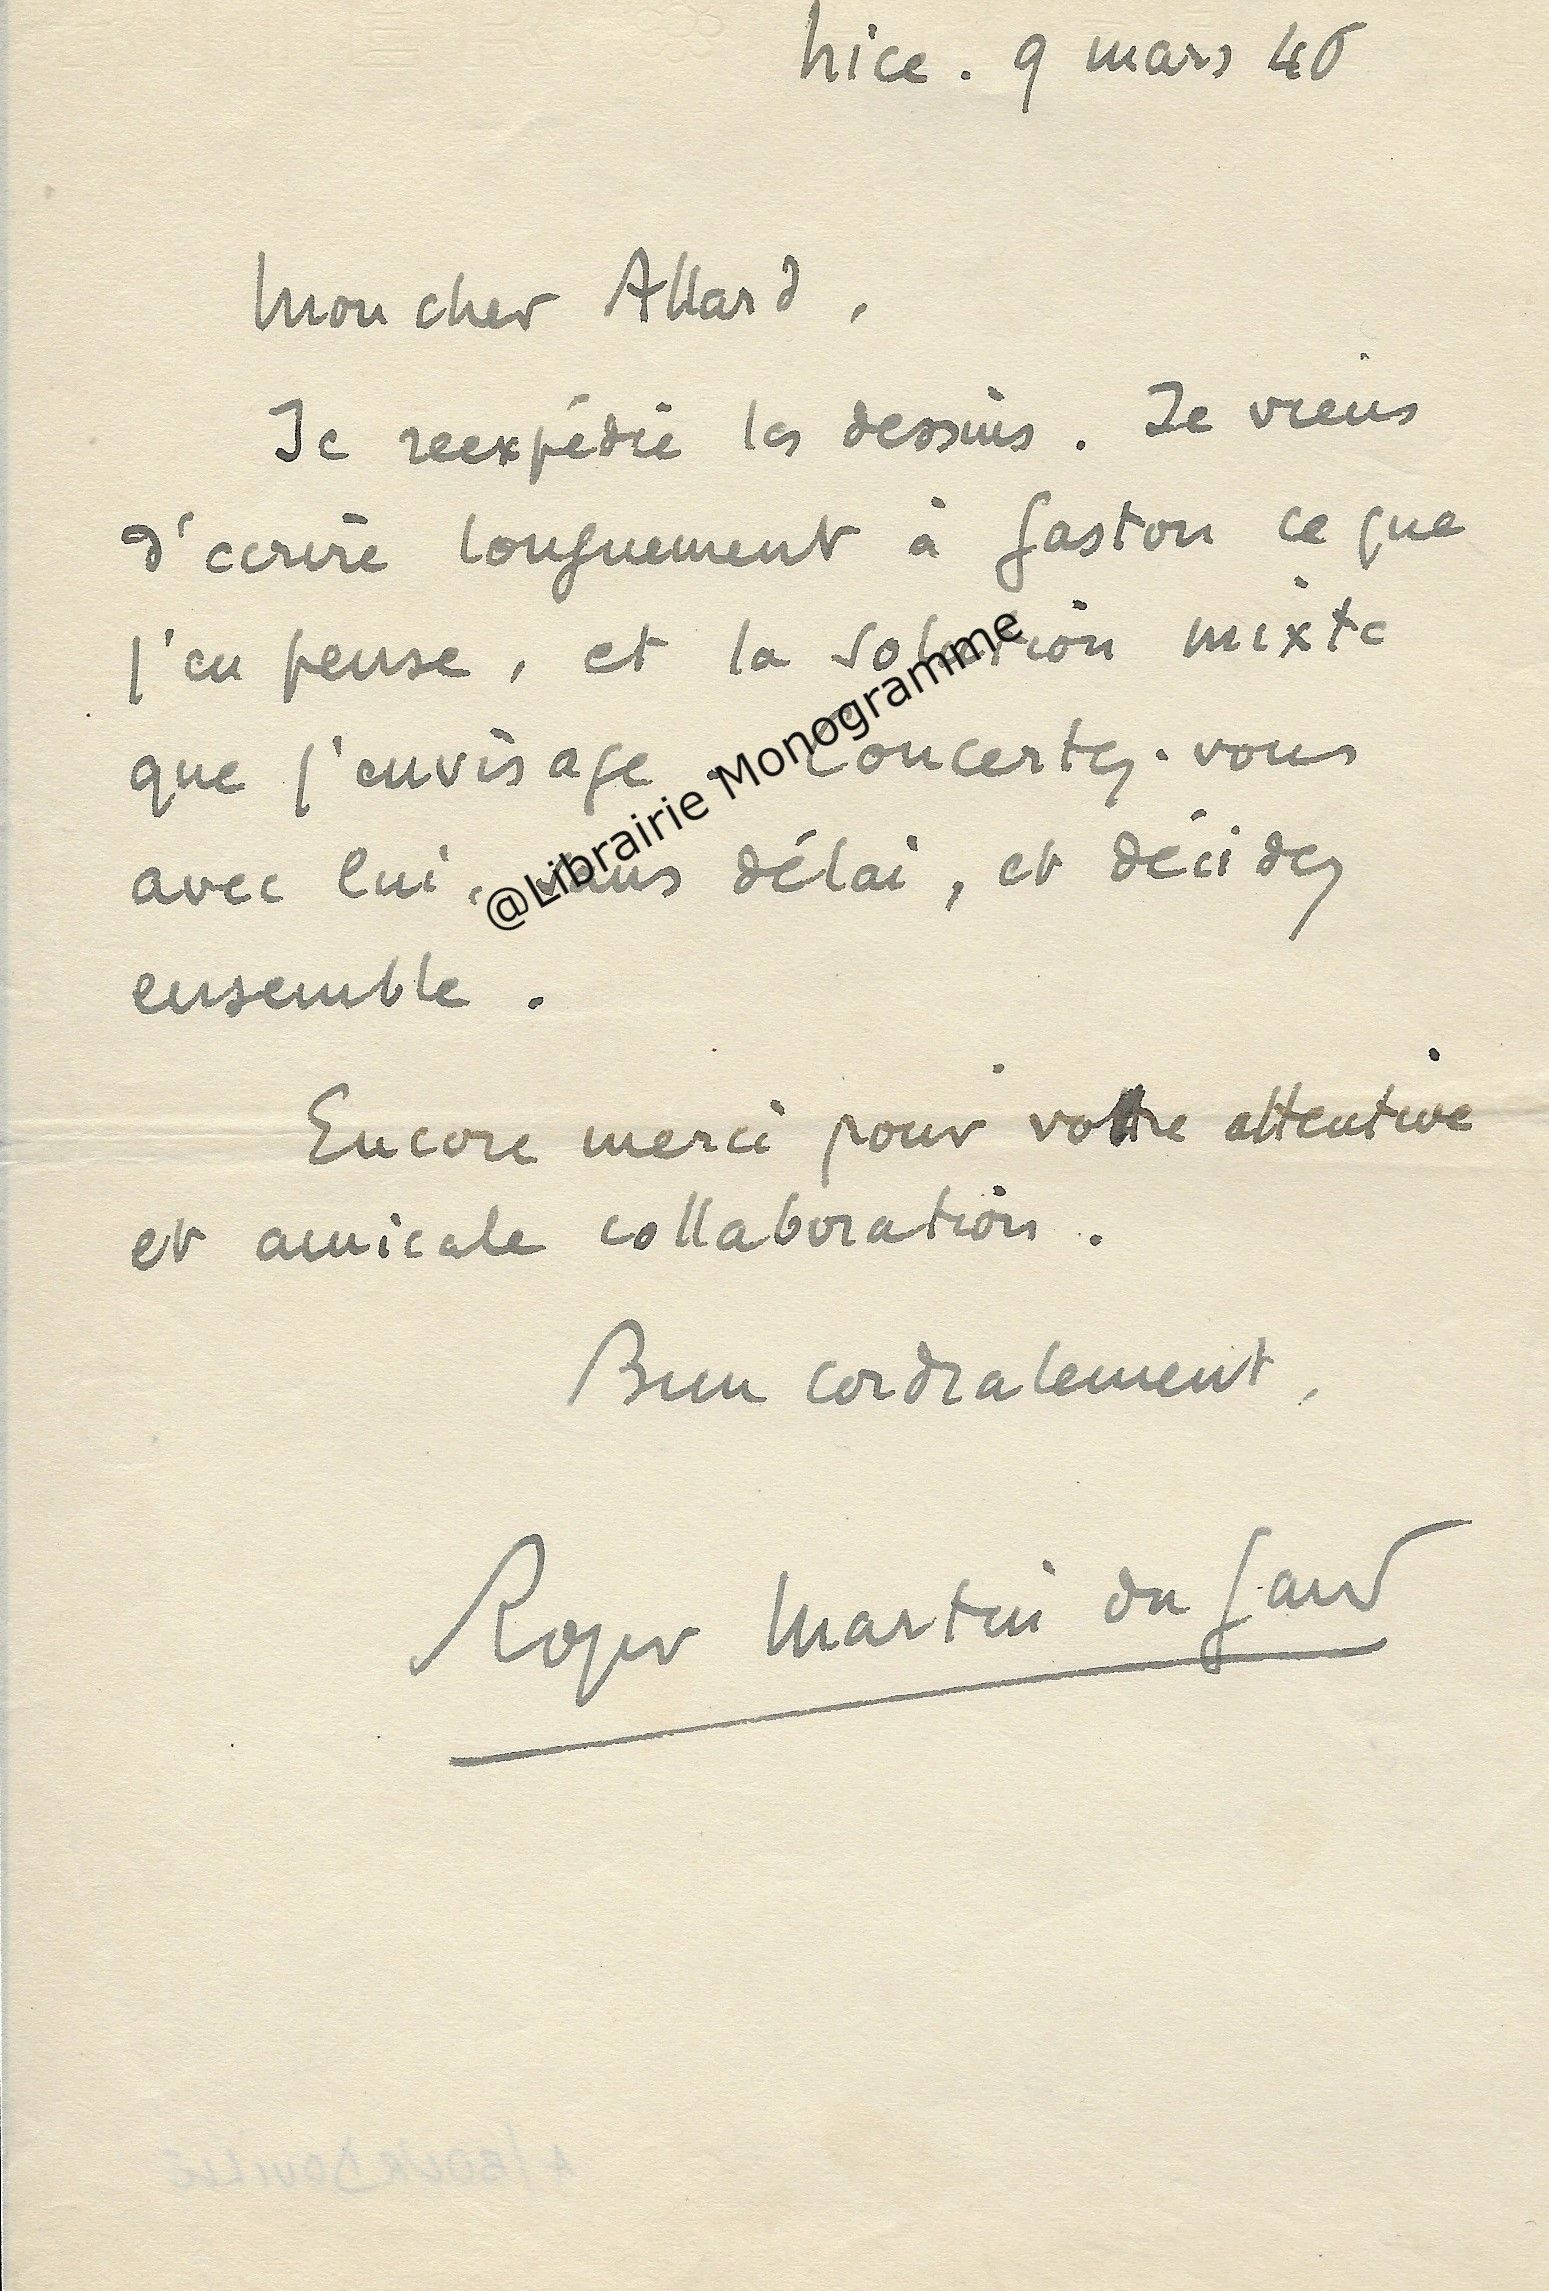 Nice. 9 mars 46
Mon cher Allard,
Je réexpédie les dessins. Je viens
d'écrire longuement à Gaston ce que
j'en pense, et la solution mixte
que j'envisage. Concertez-vous
avec lui, sans délai, et décidez
ensemble.
Encore merci pour votre attentive
et amicale collaboration.
Bien cordialement,
Roger Martin du Gard
@Librairie Monogramme